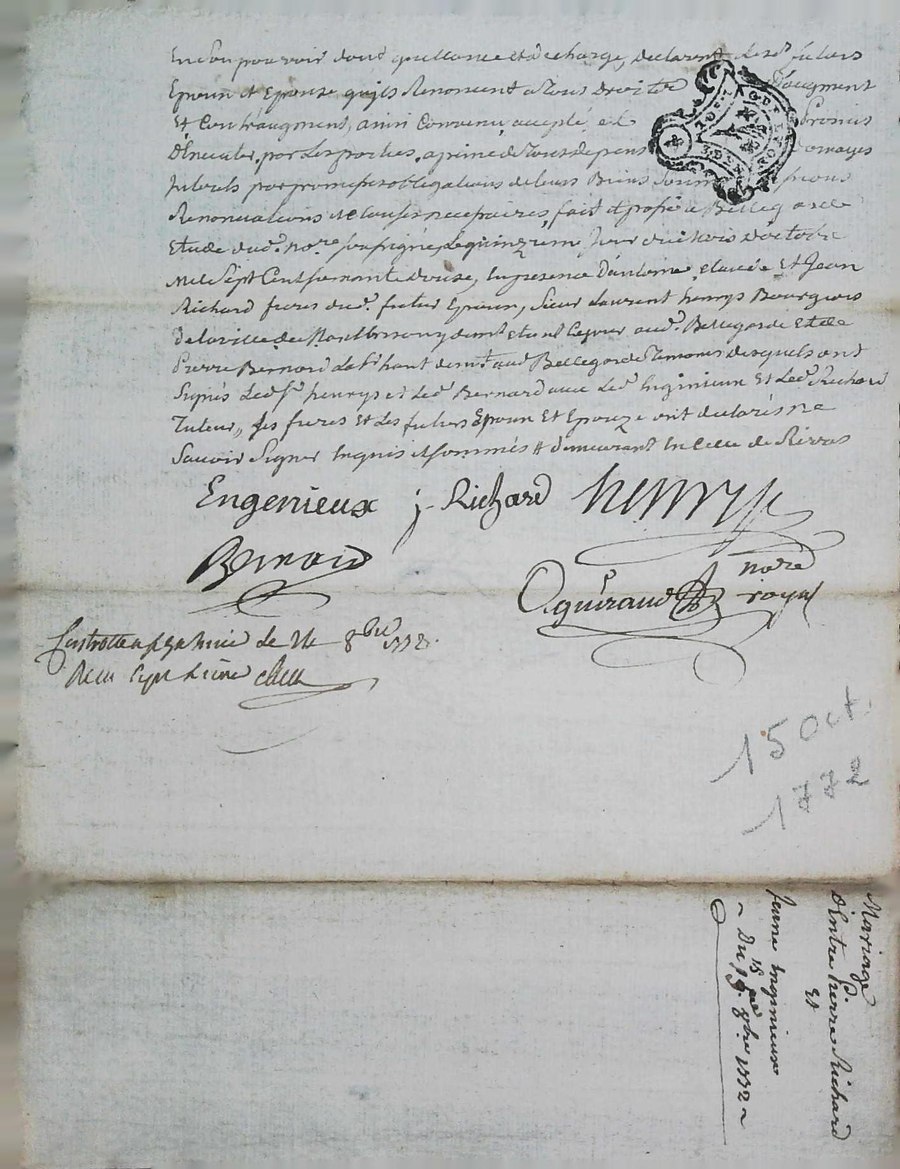 En son pouvoir dont quittance et décharge, declarent Lesd. futurs
Epoux et Epouze qu'ils Renoncent a Tous Droits d'augment
Et Contr'augment, ainsi Convenu, accepté, et promis
D'Executer, par Les parties, a peine de Tous depens domages
Interets par promesses obligations de leurs Biens
Renonciations et clauses necessaires, fait et passé a Bellegarde
Etude dud. nore. soussigné, Le quinzieme Jour du Mois D'octobre
Mil Sept Cent soixante Douze, En presence D'antoine, claude Et Jean
Richard freres dud. futur Epoux, Sieur Laurent henrys Bourgeois
De la ville de Montbrison, aud. Bellegarde Et de
Pierre Bernard aud. Bellegarde Temoins desquels ont
Signés Led. Sr. henrys et Led. Bernard avec Led. Inginieux Et Led. Richard
Tuteur, ses freres Et Les futurs Epoux Et Epouze ont declarés ne
Savoir Signer Enquis et sommés # demeurant
Engenieux j. Richard henrys
Bernard
guiraud nore
royal
de 8bre 1772.
Reçu
15 Oct.
1772
Mariage
D'Entre Pierre Richard
Et
Jeanne Inginieux
~ Du 15 8bre 1772 ~